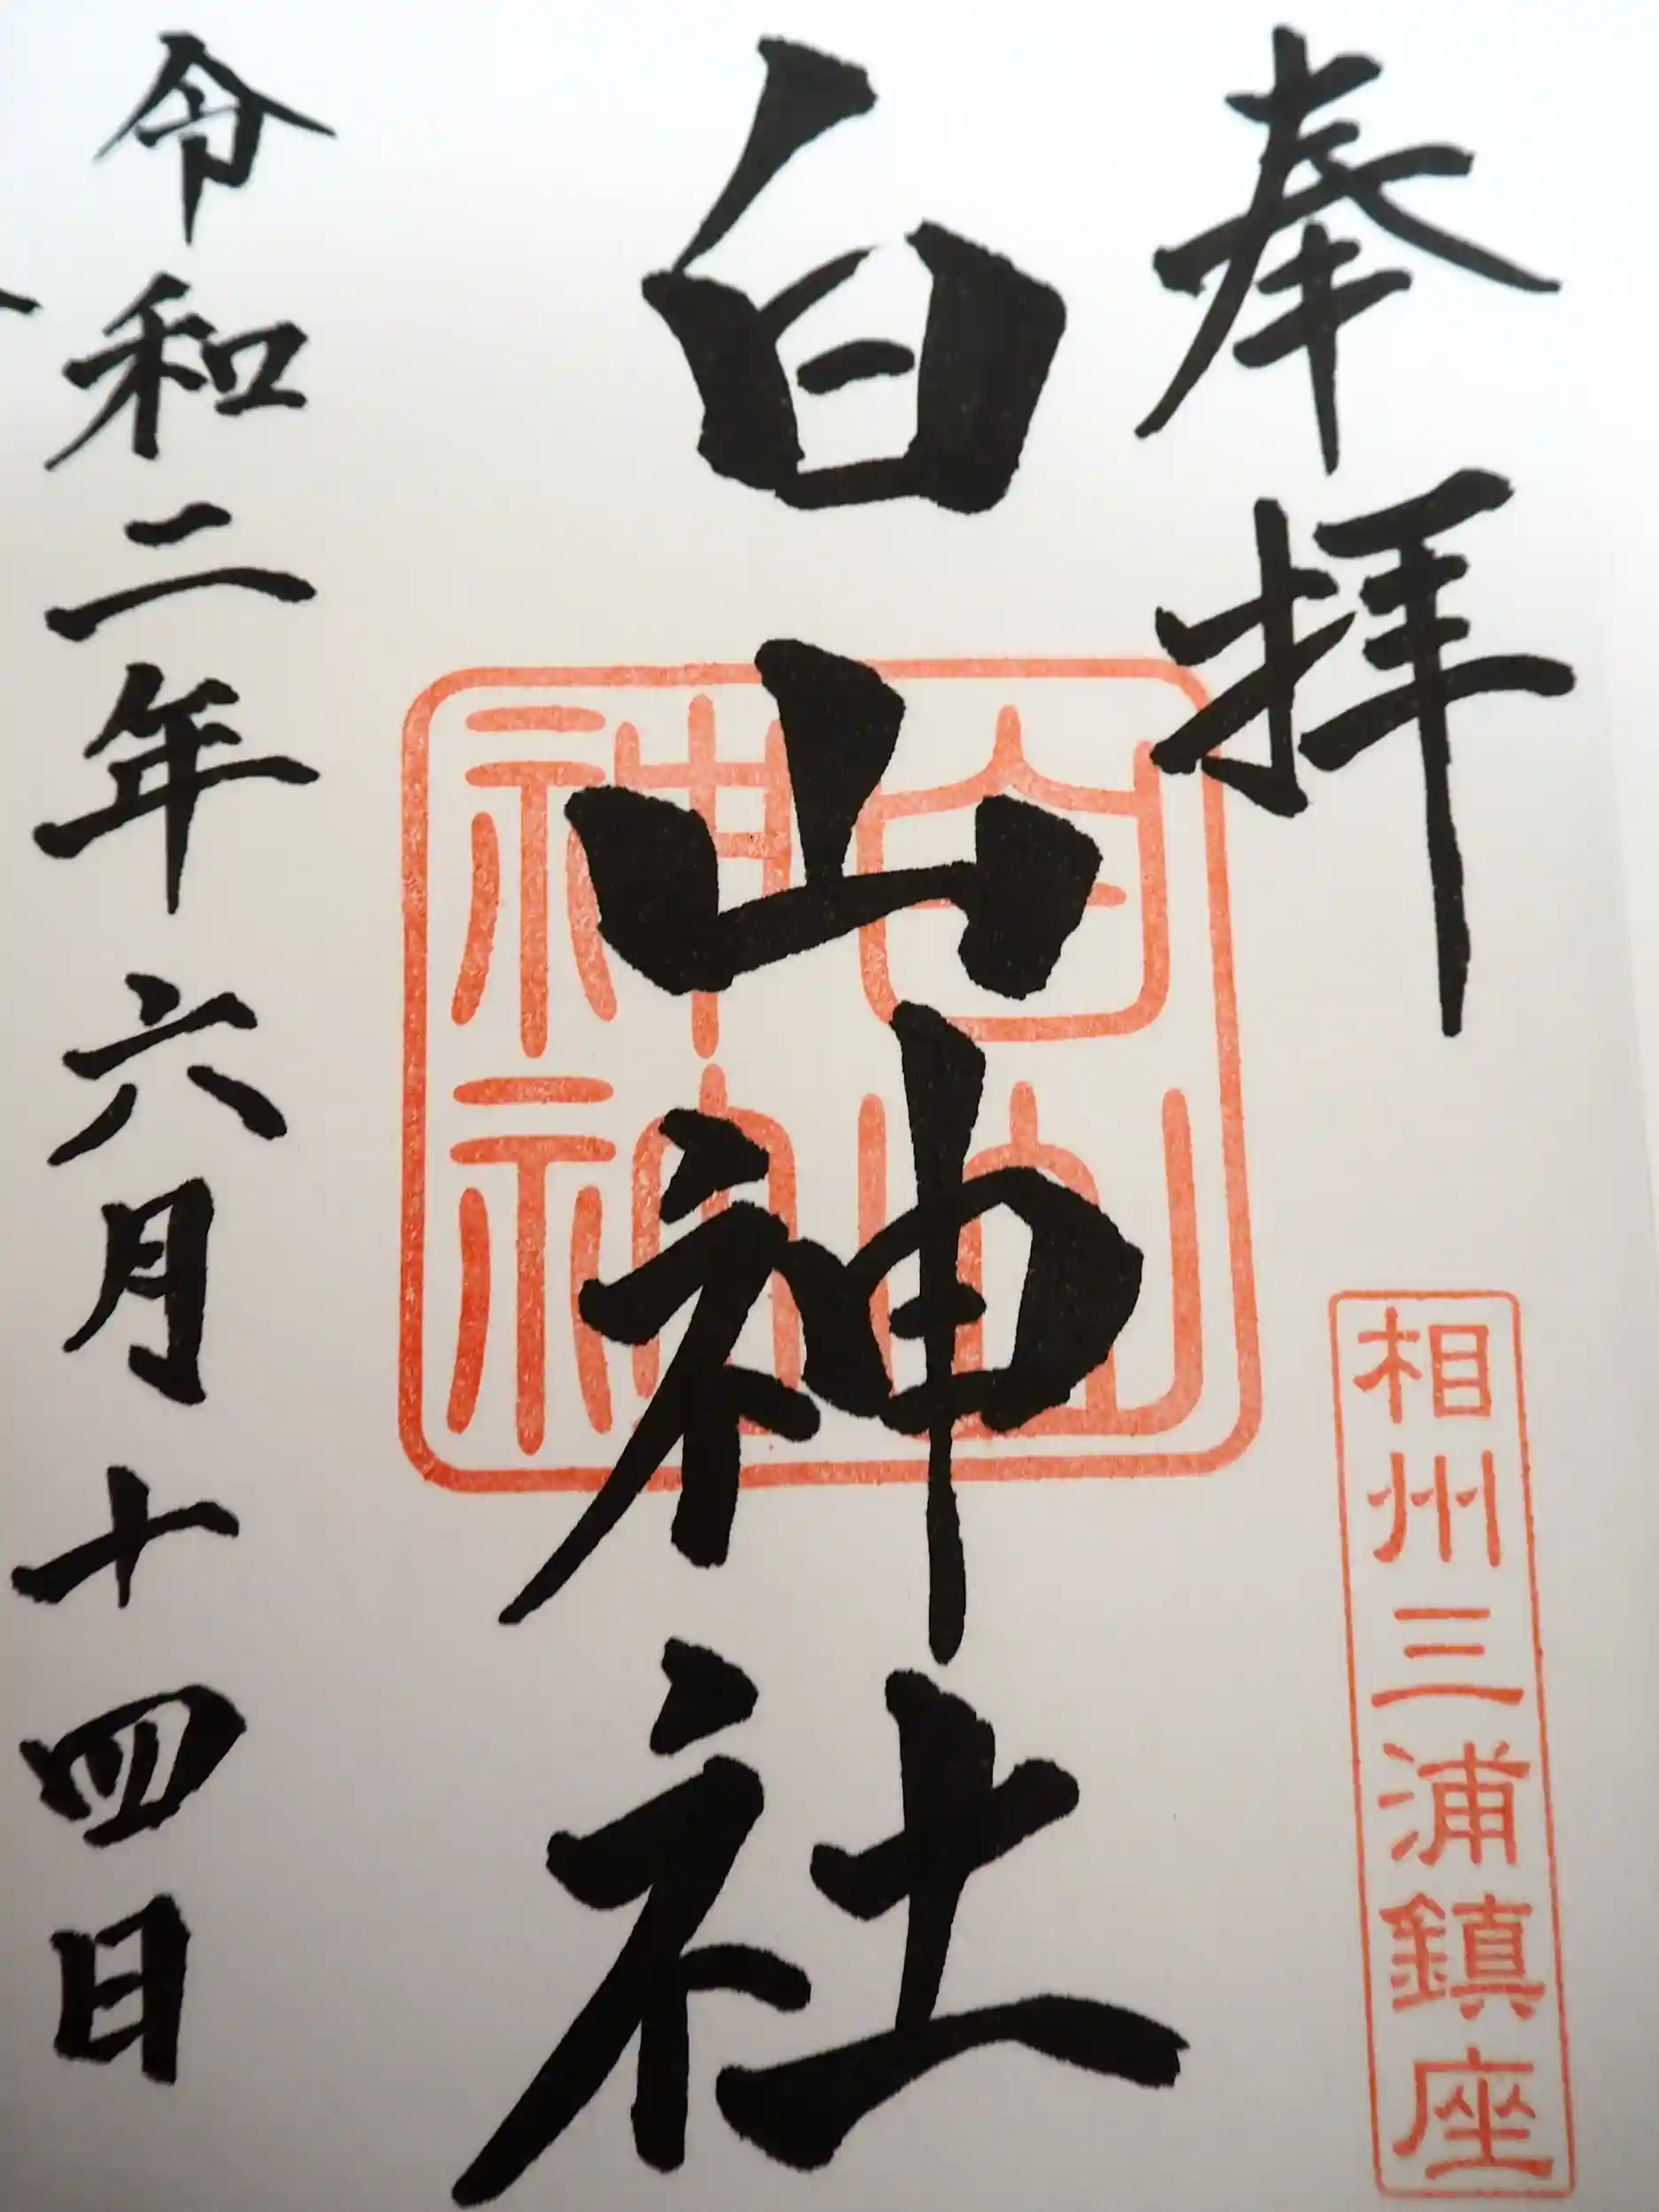 奉拝
相州三浦鎮座
白山神社
白山神社
令和二年六月十四日